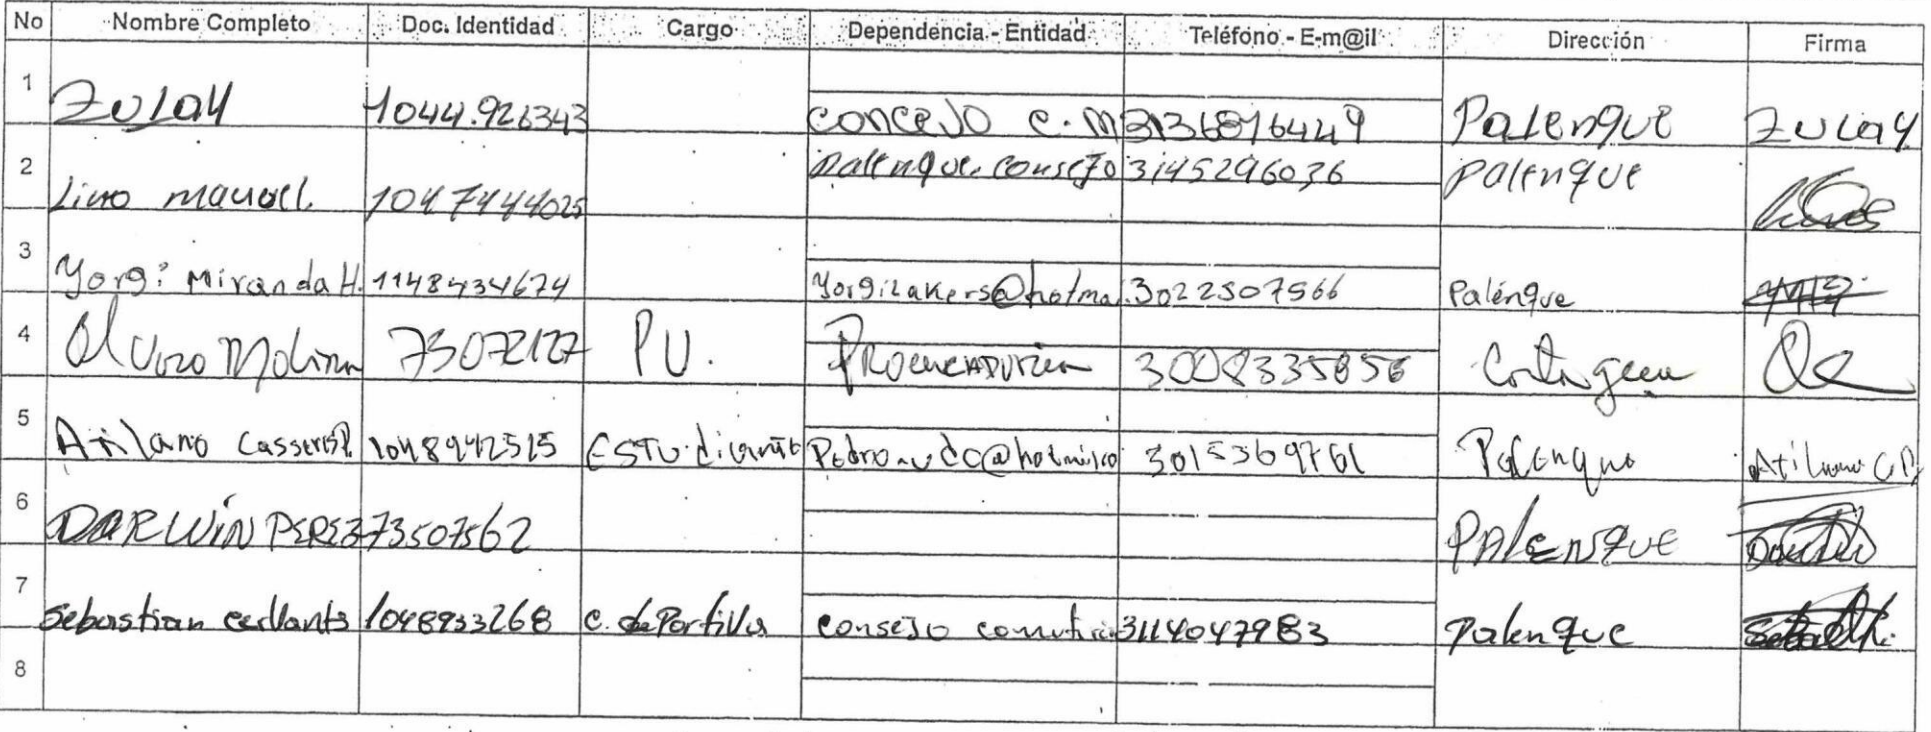 No Nombre Completo Doc. Identidad Cargo Dependencia - Entidad Teléfono - E-m@il Dirección Firma
1 ZULAY 1044.926343 CONCEJO C.M 3136816449 Palenque ZULAY
2 Lino manuel. 1047444025 Palenque. consejo 3145296036 Palenque
3 Yorgi Miranda H. 1148434674 Yorgilakers@hotma. 3022507566 Palénque
4 Alvaro Molina 73072127 PU. Procuraduria 3008335856 Cartagena
5 Atilano Casseres P. 1048942515 Estudiante Pedro-udc@hotmilco 3015369761 Palenque Atilano C P
6 DARWIN PEREZ 73507562 PALENQUE
7 Sebastian cervants 1048933268 C. dePortiva consejo 3114047983 Palenque
8